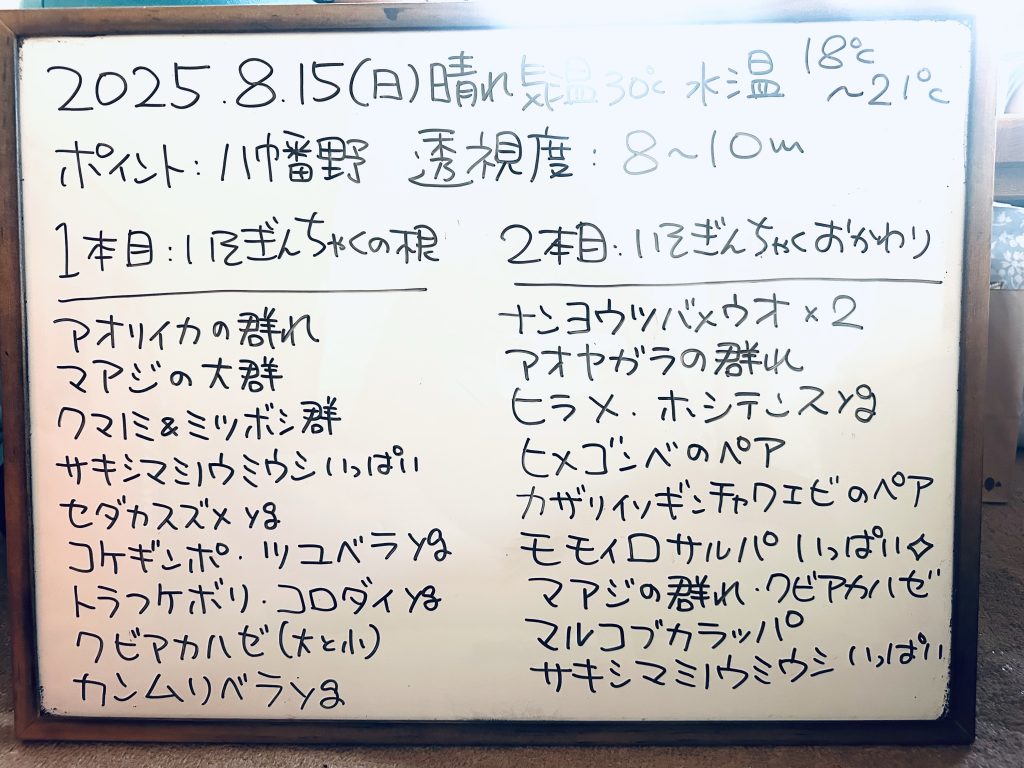 2025.8.15(日)晴れ 気温30℃ 水温 18℃～21℃
ポイント: 八幡野 透視度: 8～10m
1本目: いそぎんちゃくの根
アオリイカの群れ
マアジの大群
クマノミ&ミツボシ群
サキシマミノウミウシいっぱい
セダカスズメyg
コケギンポ・ツユベラyg
トラフケボリ・コロダイyg
クビアカハゼ(大と小)
カンムリベラyg
2本目: いそぎんちゃくおかわり
ナンヨウツバメウオ×2
アオヤガラの群れ
ヒラメ・ホシテンスyg
ヒメゴンベのペア
カザリイソギンチャクエビのペア
モモイロサルパいっぱい✧
マアジの群れ・クビアカハゼ
マルコブカラッパ
サキシマミノウミウシいっぱい